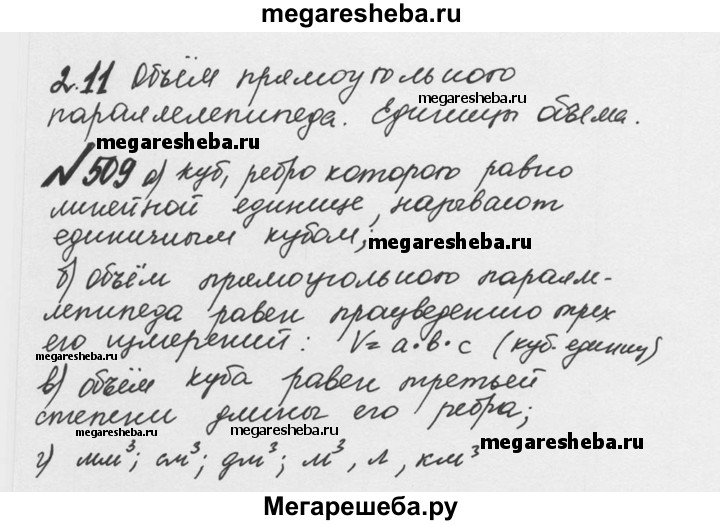 megaresheba.ru
2.11 Объём прямоугольного
megaresheba.ru
параллелепипеда. Единицы объема.
megaresheba.ru
№509 а) куб, ребро которого равно
линейной единице, называют
единичным кубом;
megaresheba.ru
б) объём прямоугольного паралл-
лепипеда равен працведению трех
его измерений: V = a·в·c (куб. единиц)
megaresheba.ru
в) объём куба равен третьей
степени длины его ребра;
megaresheba.ru
megaresheba.ru
megaresheba.ru
г) мм³; см³; дм³; м³, л, км³
Мегарешеба.ру